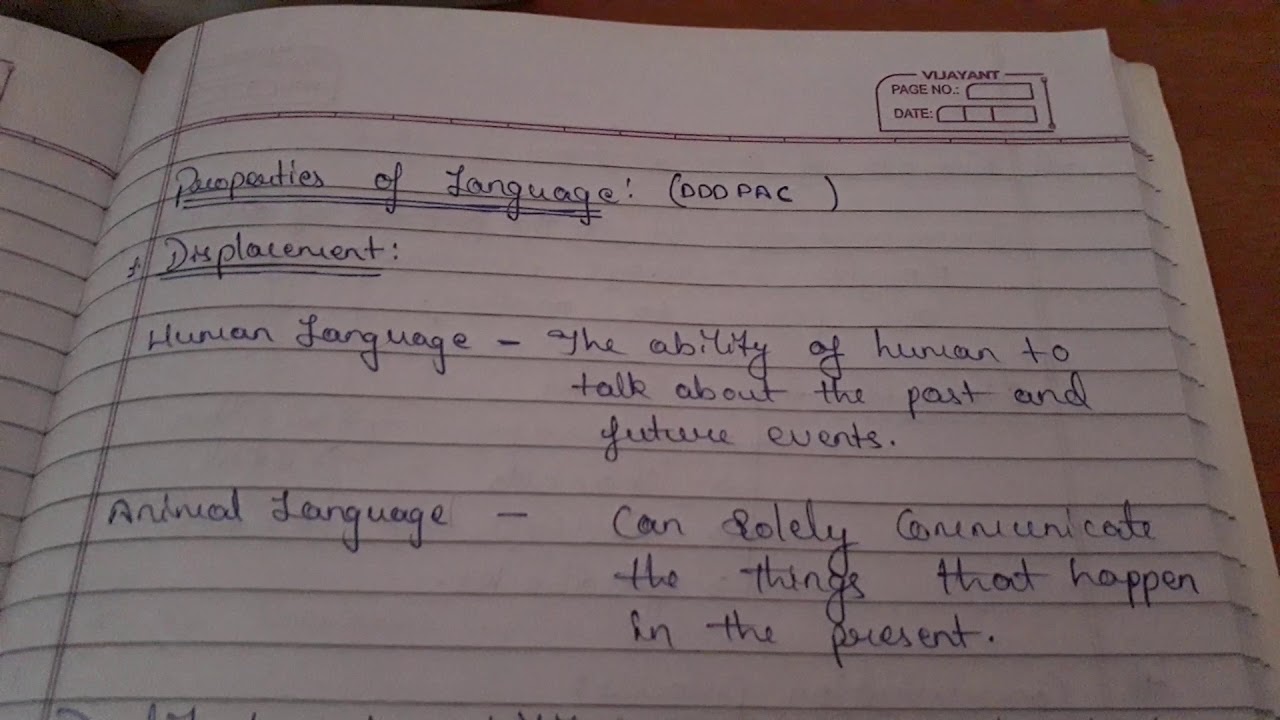 VIJAYANT
PAGE NO.:
DATE:
Properties of Language: (DDDPAC )
Displacement:
Human Language - The ability of human to
talk about the past and
future events.
Animal Language - Can solely communicate
the things that happen
in the present.